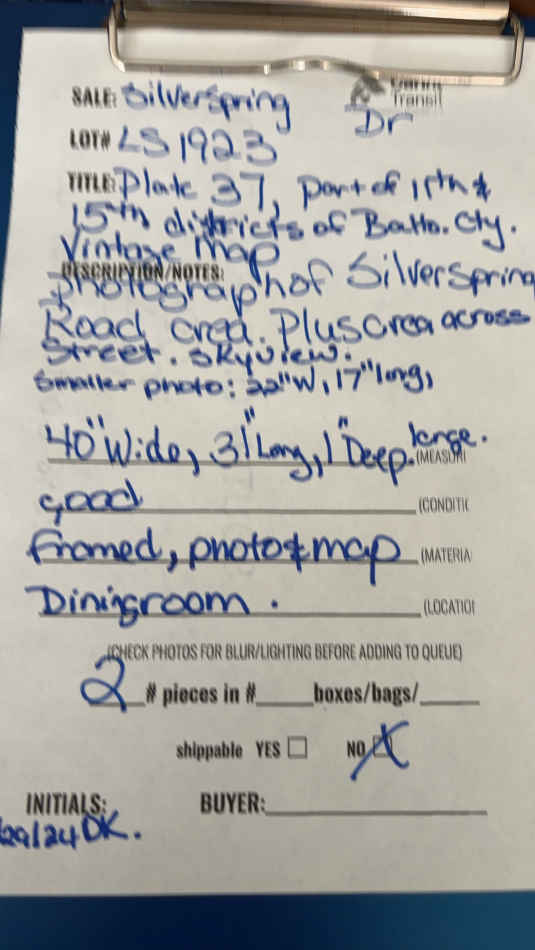 Transit
SALE: Silverspring
Dr
LOT# LS 1923
TITLE: Plate 37, part of 11th &
15th districts of Balto. Cty.
Vintage map
DESCRIPTION/NOTES:
photographof Silverspring
Road area. Plus area across
street. skyview.
smaller photo: 22"W, 17"long,
40" Wide, 31" Long, 1" Deep. large.
(MEASURI
good (CONDITI(
framed, photo & map (MATERIA
Diningroom. (LOCATIO
(CHECK PHOTOS FOR BLUR/LIGHTING BEFORE ADDING TO QUEUE)
2 # pieces in #____ boxes/bags/____
shippable YES ☐ NO X
INITIALS: BUYER:
29/24 DK.